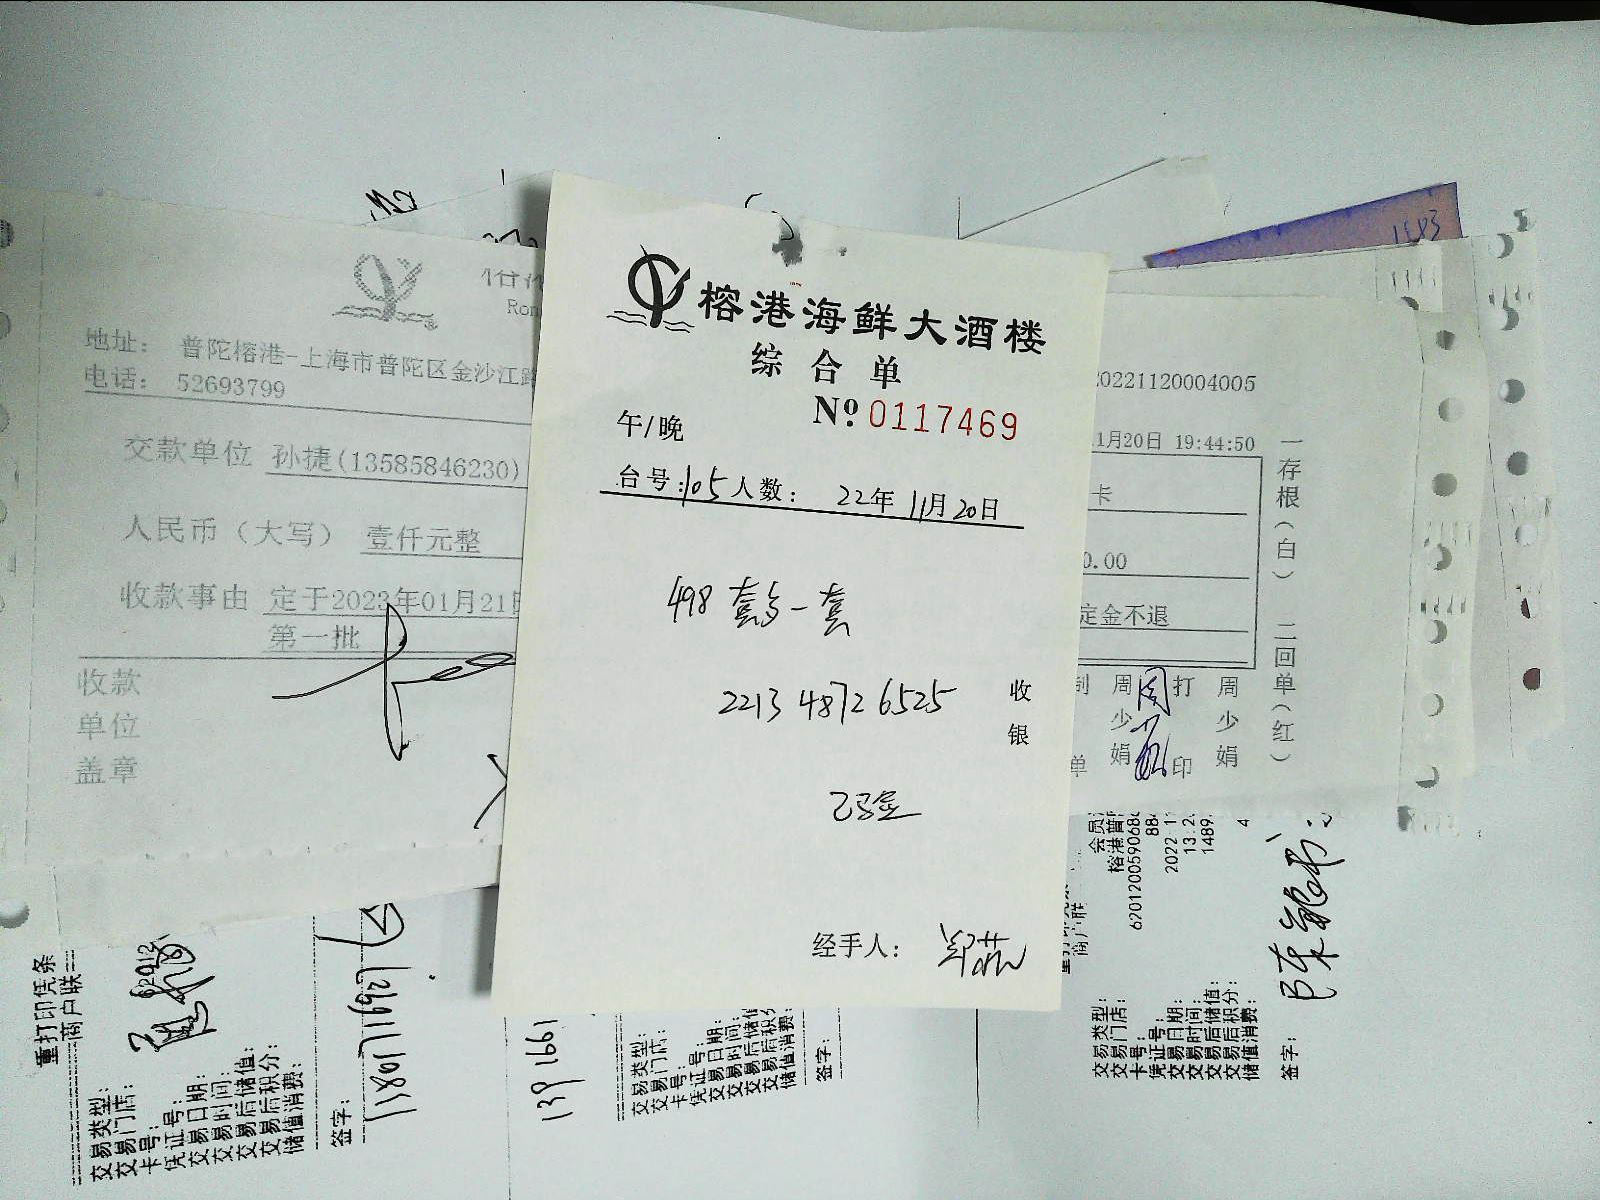 榕港海鲜大酒楼
综合单
№ 0117469
午/晚
台号:105 人数: 22年11月20日
498 套 一套
2213 4872 6525
收
银
已
经手人:
Ron
地址: 普陀榕港-上海市普陀区金沙江路
电话: 52693799
交款单位 孙捷(13585846230)
人民币(大写) 壹仟元整
收款事由 定于2023年01月21日
第一批
收款
单位
盖章
20221120004005
11月20日 19:44:50
卡
0.00
定金不退
制 周少娟 打印 周少娟
单
一存根(白) 二回单(红)
1583
重打印凭条
商户联
62912
交易类型:
交易门店:
卡号:
凭证号:
交易日期:
交易时间:
交易后储值:
交易后积分:
储值消费:
签字:
13801711692
139 1661
交易类型:
交易门店:
卡号:
凭证号:
交易日期:
交易时间:
交易后储值
交易后积
储值消费:
签字:
商户联
会员
榕港普
6201200590686
88
2022 1
13:2
1489.
4
交易类型:
交易门店:
卡号:
凭证号:
交易日期:
交易时间:
交易后储值:
交易后积分:
储值消费:
签字: